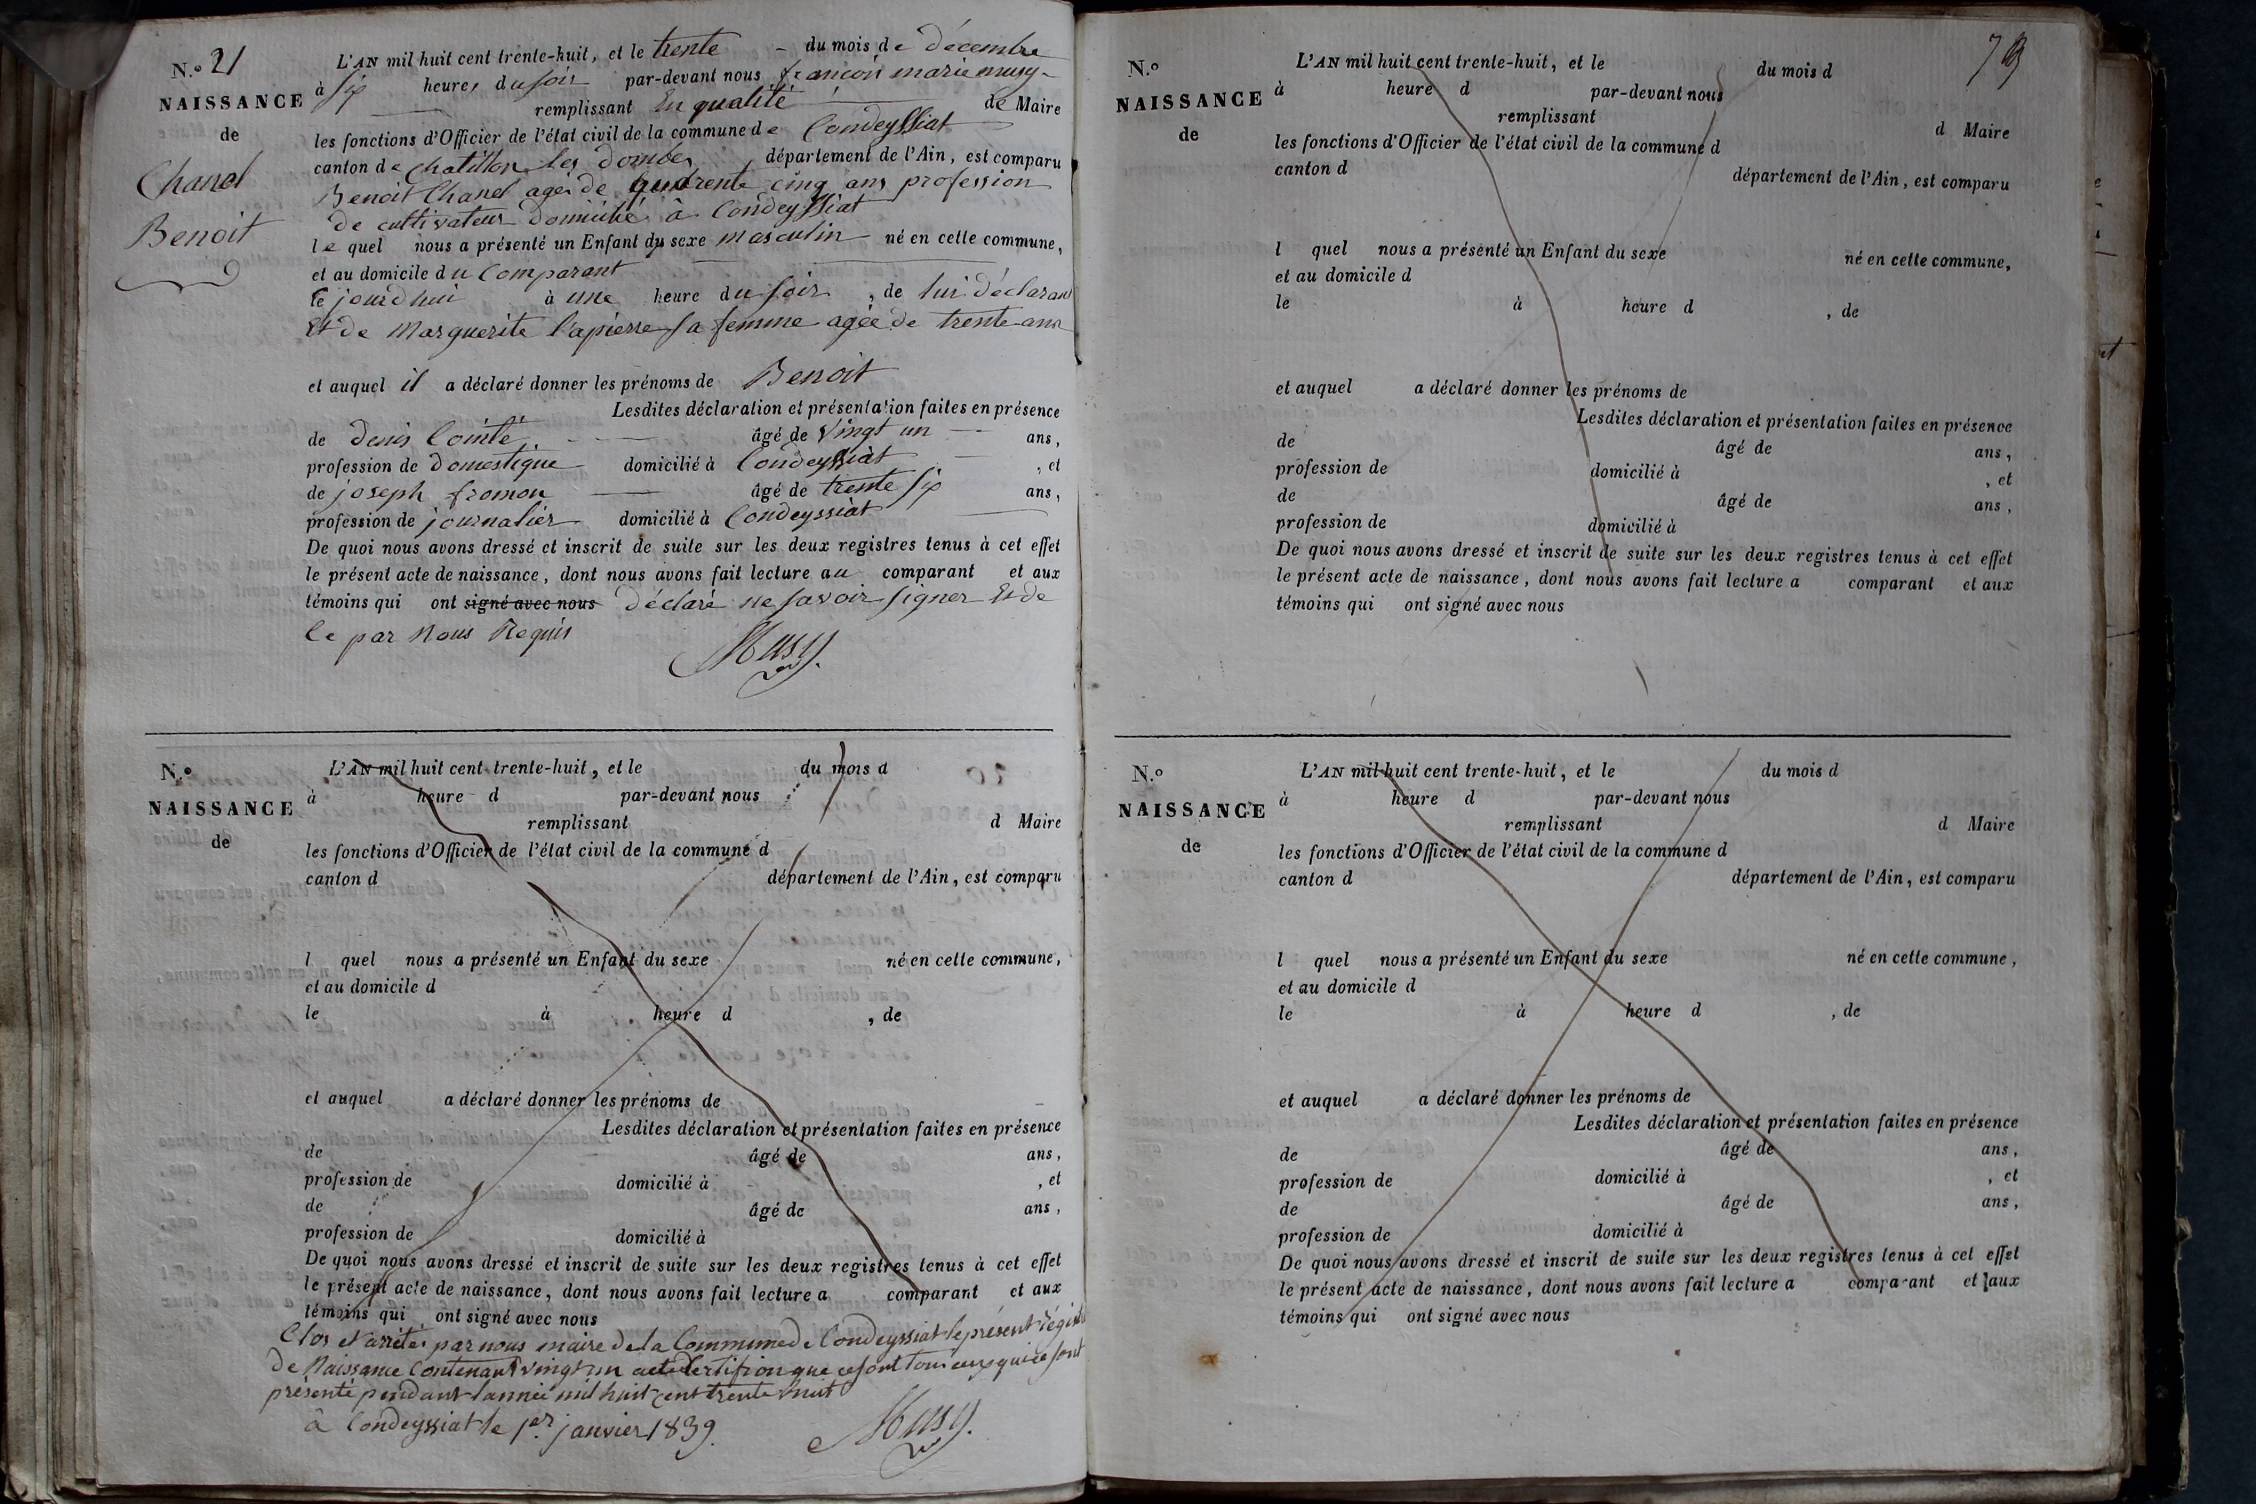 N.º 21
NAISSANCE
de
Chanel
Benoit
L'AN mil huit cent trente-huit, et le trente - du mois de décembre
à six heures du soir par-devant nous françois marie musy
remplissant En qualité de Maire
les fonctions d'Officier de l'état civil de la commune de Condeyssiat
canton de Chatillon les dombes, département de l'Ain, est comparu
Benoit Chanel agé de quarente cinq ans profession
de cultivateur domicilié à Condeyssiat
le quel nous a présenté un Enfant du sexe masculin né en cette commune,
et au domicile du Comparant
le jourd'hui à une heure du soir, de lui déclarant
Et de Marguerite lapierre sa femme agée de trente ans
et auquel il a déclaré donner les prénoms de Benoit
Lesdites déclaration et présentation faites en présence
de denis Comte âgé de vingt un ans,
profession de domestique domicilié à Condeyssiàt, et
de joseph fromon âgé de trente six ans,
profession de journalier domicilié à Condeyssiàt
De quoi nous avons dressé et inscrit de suite sur les deux registres tenus à cet effet
le présent acte de naissance, dont nous avons fait lecture au comparant et aux
témoins qui ont signé avec nous déclaré ne savoir signer Et de
ce par Nous Requis
Musy
N.º
NAISSANCE
de
L'AN mil huit cent trente-huit, et le du mois d
à heure d par-devant nous
remplissant d Maire
les fonctions d'Officier de l'état civil de la commune d
canton d département de l'Ain, est comparu
l quel nous a présenté un Enfant du sexe né en cette commune,
et au domicile d
le à heure d , de
et auquel a déclaré donner les prénoms de
Lesdites déclaration et présentation faites en présence
de âgé de ans,
profession de domicilié à , et
de âgé de ans,
profession de domicilié à
De quoi nous avons dressé et inscrit de suite sur les deux registres tenus à cet effet
le présent acte de naissance, dont nous avons fait lecture a comparant et aux
témoins qui ont signé avec nous
Clos et arrêtés par nous maire de la Commune de Condeyssiat le présent régistre
de Naissance Contenant vingt un acte Certifion que ce sont tous ceux qui ce sont
présenté pendant l'année mil huit cent trente huit
à Condeyssiat le 1er janvier 1839.
Musy
N.º
NAISSANCE
de
L'AN mil huit cent trente-huit, et le du mois d
à heure d par-devant nous
remplissant d Maire
les fonctions d'Officier de l'état civil de la commune d
canton d département de l'Ain, est comparu
l quel nous a présenté un Enfant du sexe né en cette commune,
et au domicile d
le à heure d , de
et auquel a déclaré donner les prénoms de
Lesdites déclaration et présentation faites en présence
de âgé de ans,
profession de domicilié à , et
de âgé de ans,
profession de domicilié à
De quoi nous avons dressé et inscrit de suite sur les deux registres tenus à cet effet
le présent acte de naissance, dont nous avons fait lecture a comparant et aux
témoins qui ont signé avec nous
N.º
NAISSANCE
de
L'AN mil huit cent trente-huit, et le du mois d
à heure d par-devant nous
remplissant d Maire
les fonctions d'Officier de l'état civil de la commune d
canton d département de l'Ain, est comparu
l quel nous a présenté un Enfant du sexe né en cette commune,
et au domicile d
le à heure d , de
et auquel a déclaré donner les prénoms de
Lesdites déclaration et présentation faites en présence
de âgé de ans,
profession de domicilié à , et
de âgé de ans,
profession de domicilié à
De quoi nous avons dressé et inscrit de suite sur les deux registres tenus à cet effet
le présent acte de naissance, dont nous avons fait lecture a comparant et aux
témoins qui ont signé avec nous